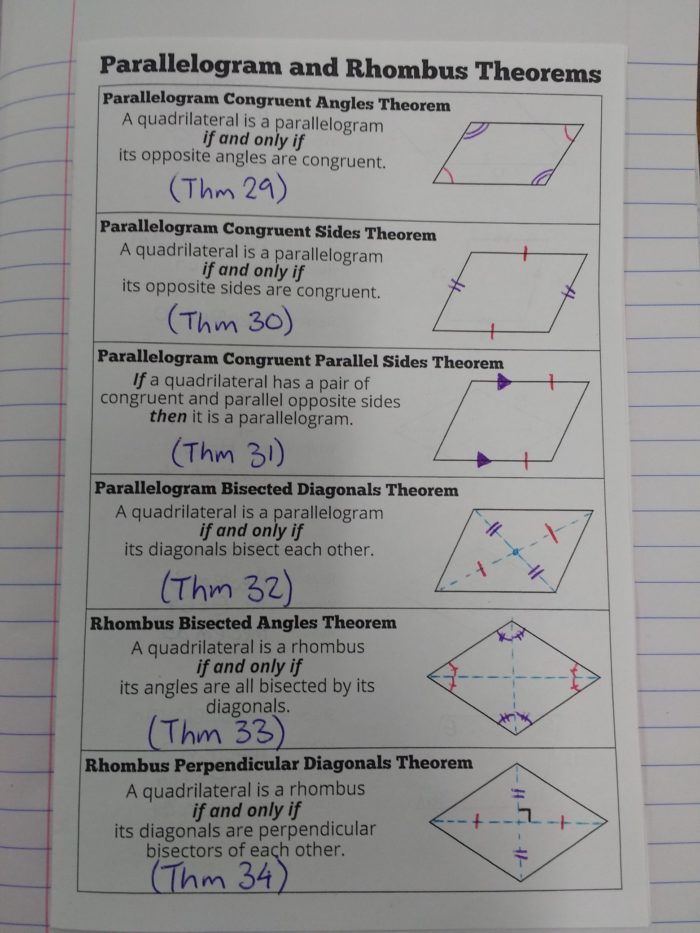 Parallelogram and Rhombus Theorems
Parallelogram Congruent Angles Theorem
A quadrilateral is a parallelogram
if and only if
its opposite angles are congruent.
(Thm 29)
Parallelogram Congruent Sides Theorem
A quadrilateral is a parallelogram
if and only if
its opposite sides are congruent.
(Thm 30)
Parallelogram Congruent Parallel Sides Theorem
If a quadrilateral has a pair of
congruent and parallel opposite sides
then it is a parallelogram.
(Thm 31)
Parallelogram Bisected Diagonals Theorem
A quadrilateral is a parallelogram
if and only if
its diagonals bisect each other.
(Thm 32)
Rhombus Bisected Angles Theorem
A quadrilateral is a rhombus
if and only if
its angles are all bisected by its
diagonals.
(Thm 33)
Rhombus Perpendicular Diagonals Theorem
A quadrilateral is a rhombus
if and only if
its diagonals are perpendicular
bisectors of each other.
(Thm 34)